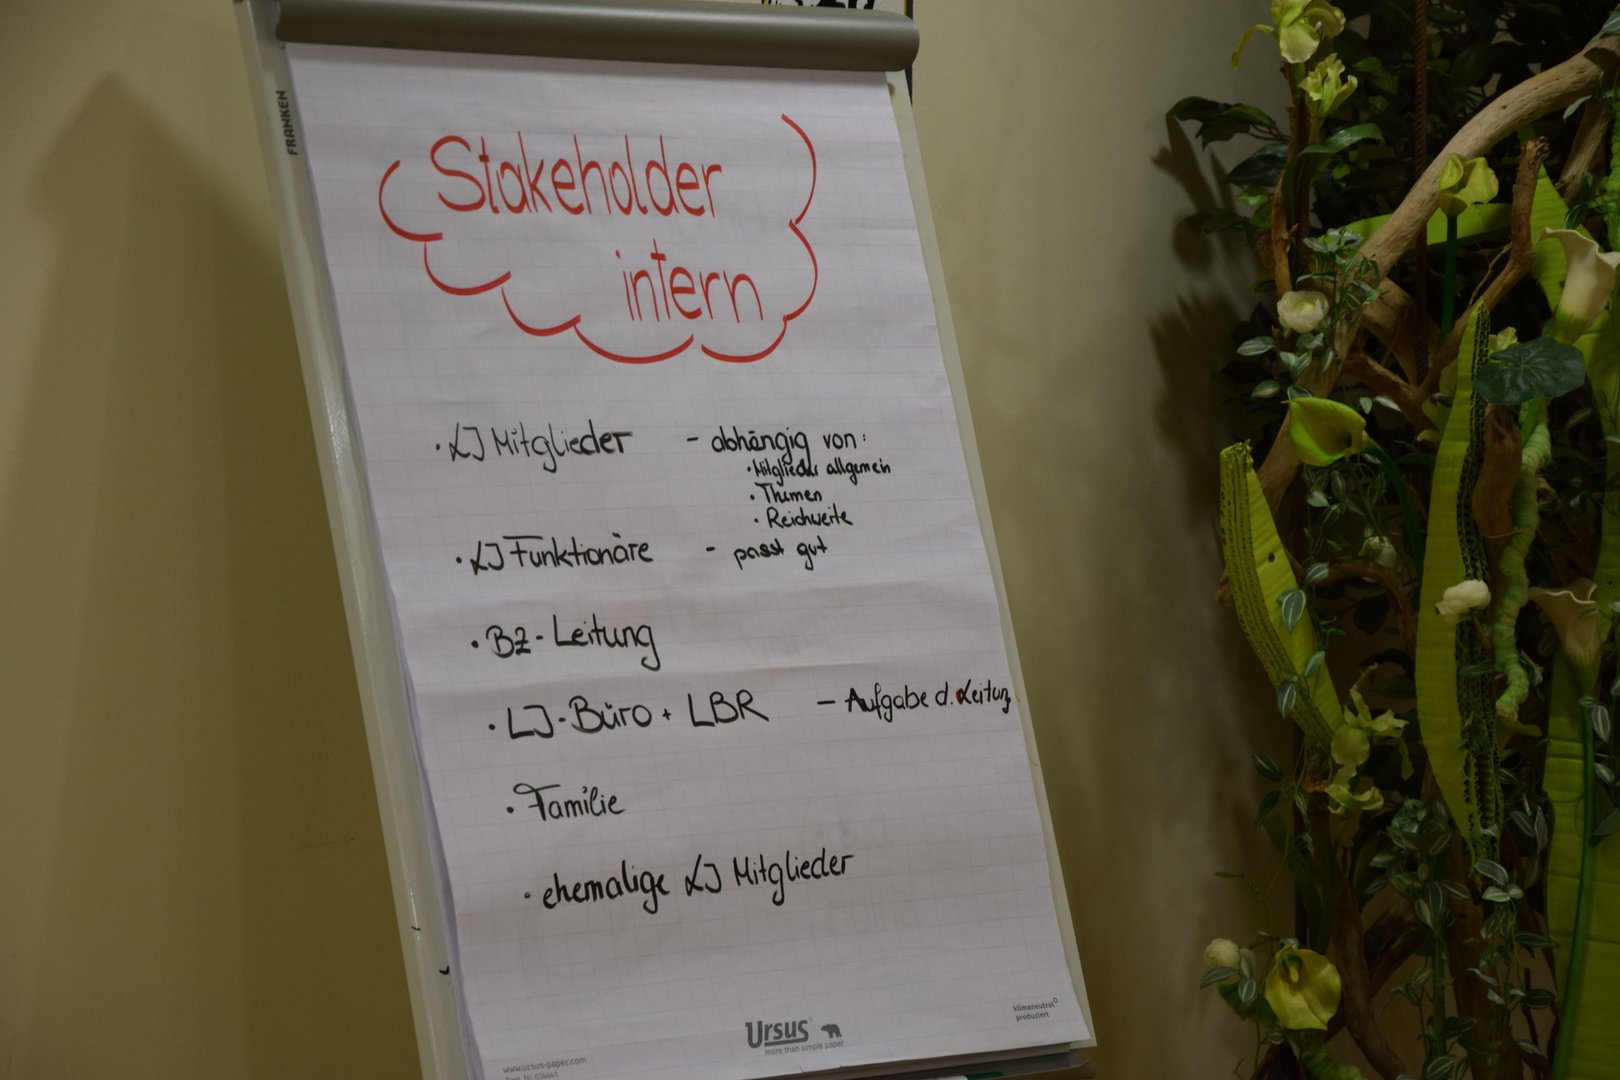 FRANKEN
Stakeholder
intern
· LJ Mitglieder - abhängig von:
· Mitglieder allgemein
· Themen
· Reichweite
· LJ Funktionäre - passt gut
· BZ - Leitung
· LJ - Büro + LBR - Aufgabe d. Leitung
· Familie
· ehemalige LJ Mitglieder
klimaneutral
produziert
Ursus®
more than simple paper
www.ursus-paper.com